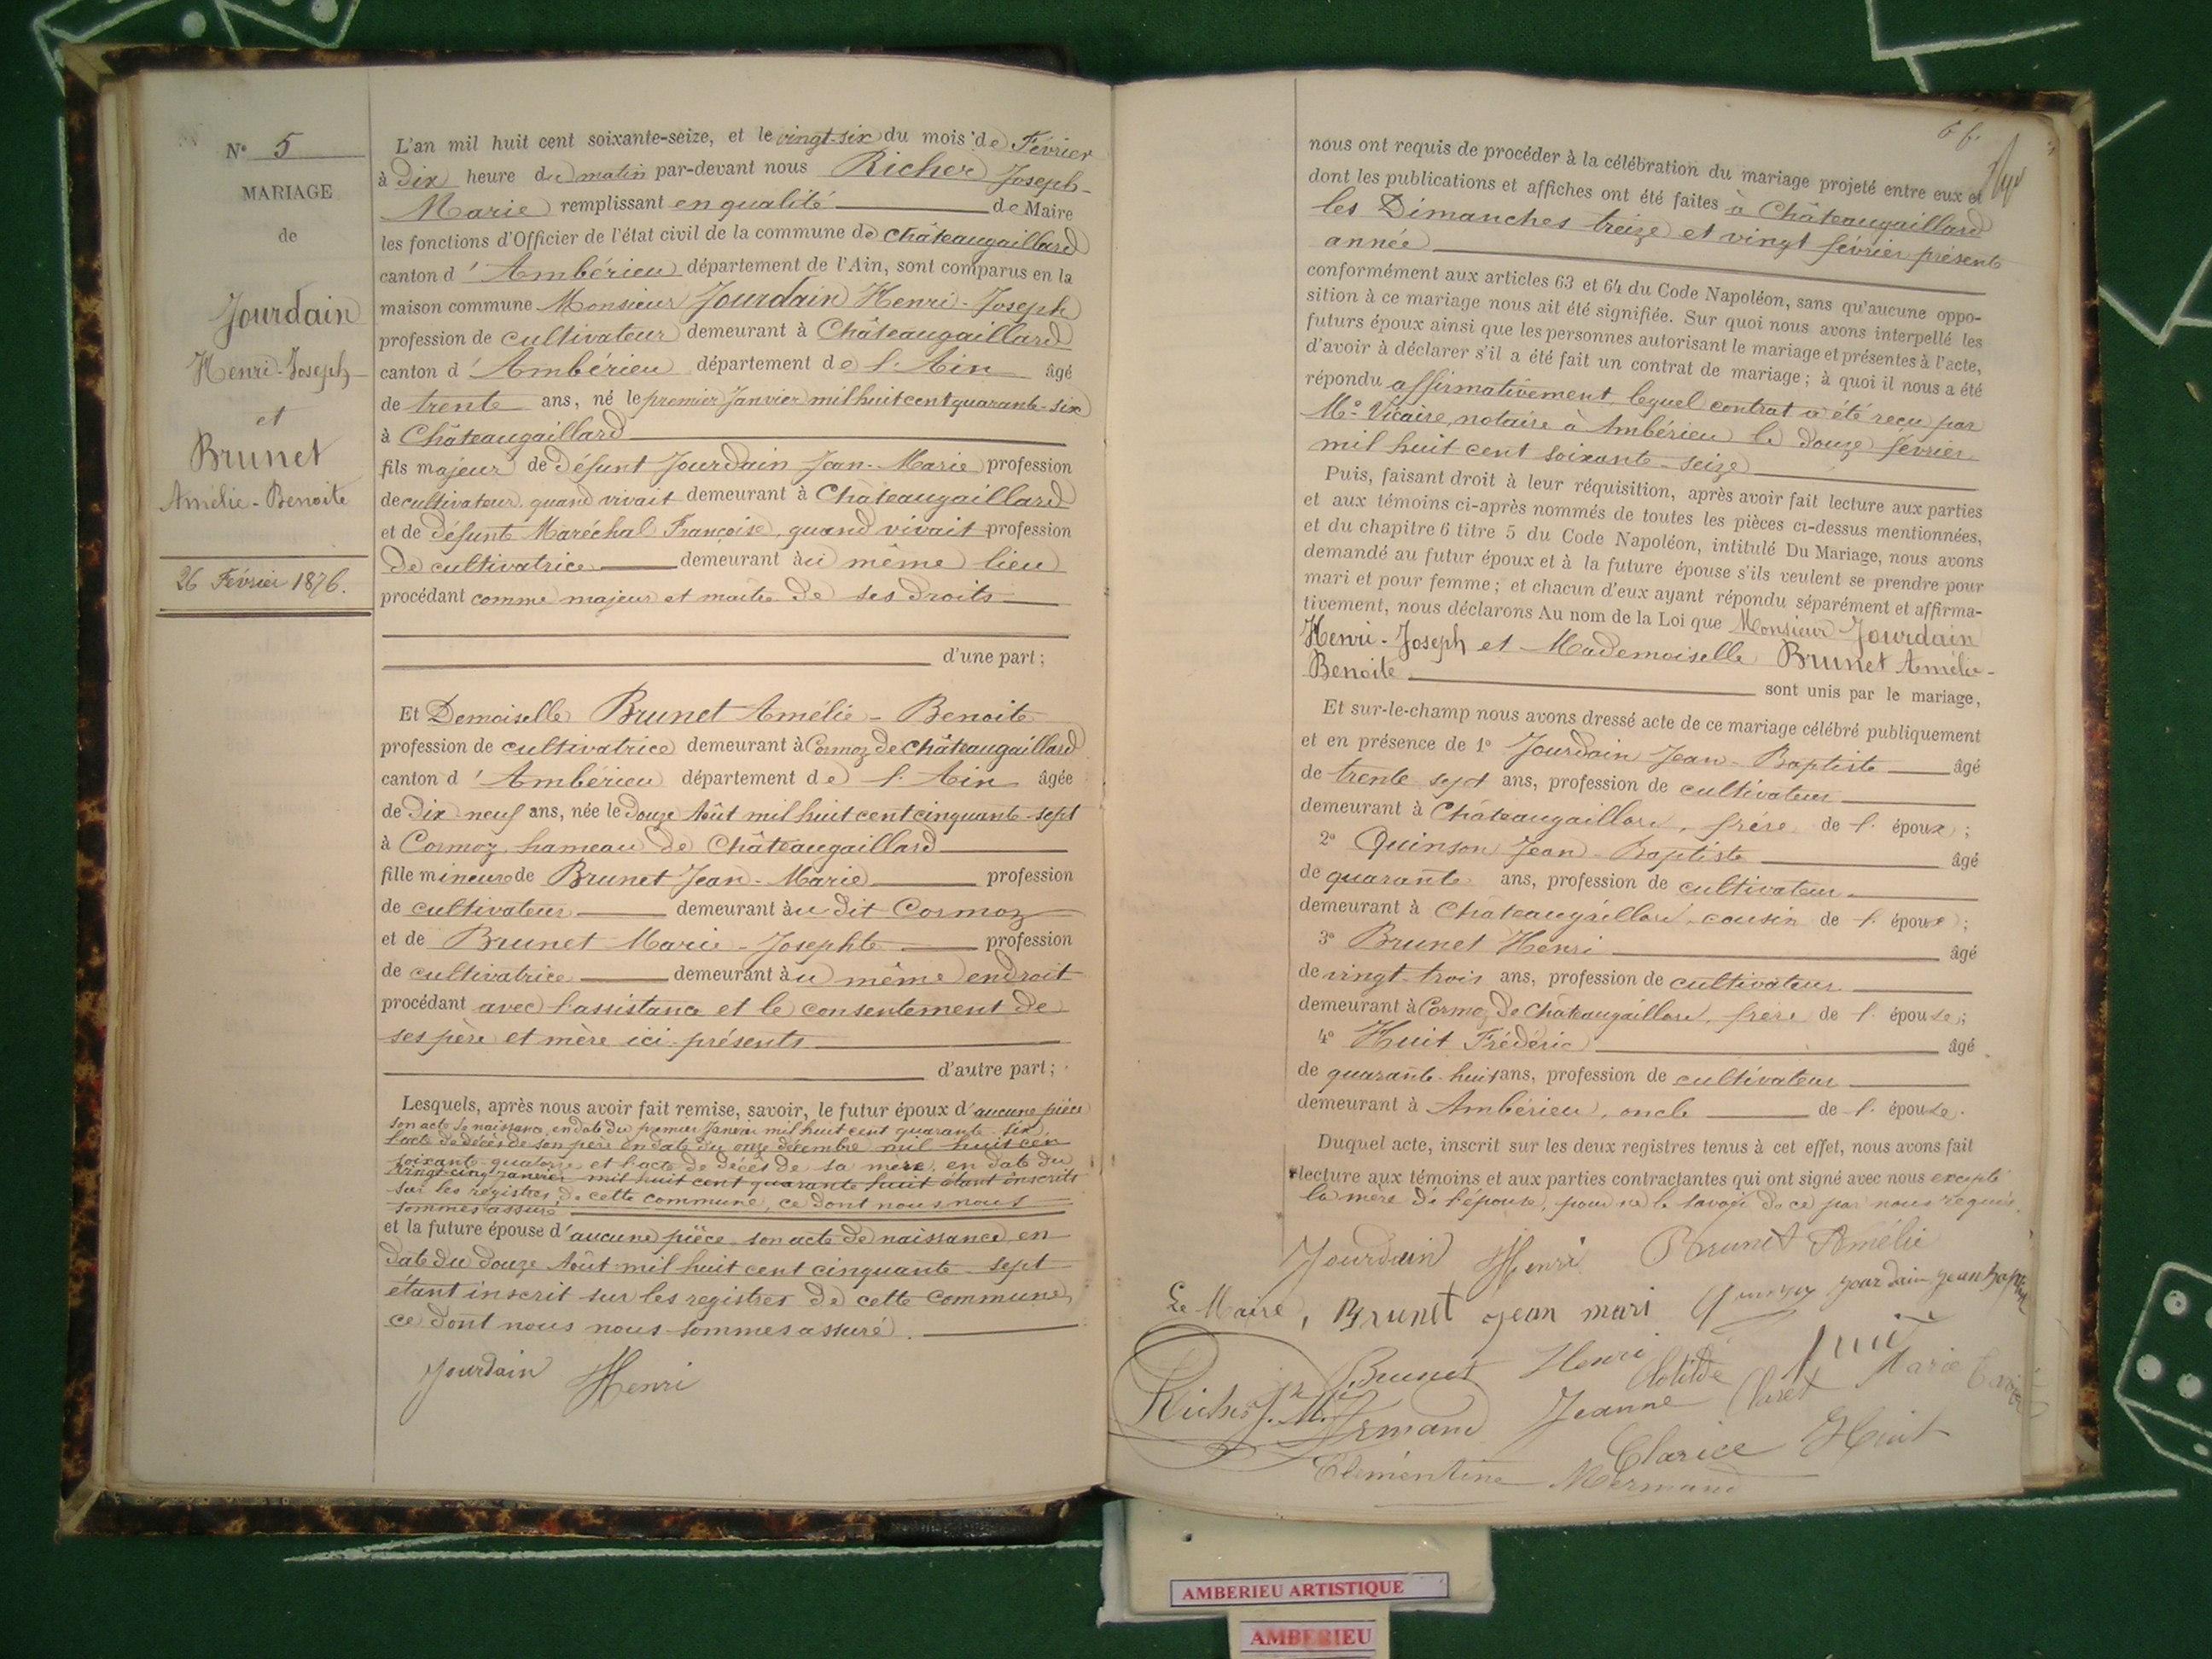 N° 5
MARIAGE
de
Jourdain
Henri-Joseph
et
Brunet
Amélie-Benoite
26 Février 1876.
L'an mil huit cent soixante-seize, et le vingt-six du mois de Février
à Dix heure du matin par-devant nous Richer Joseph-
Marie remplissant en qualité de Maire
les fonctions d'Officier de l'état civil de la commune de Châteaugaillard
canton d'Ambérieu département de l'Ain, sont comparus en la
maison commune Monsieur Jourdain Henri-Joseph
profession de cultivateur demeurant à Châteaugaillard
canton d'Ambérieu département de l'Ain âgé
de trente ans, né le premier Janvier mil huit cent quarante-six
à Châteaugaillard
fils majeur de défunt Jourdain Jean-Marie profession
de cultivateur, quand vivait demeurant à Châteaugaillard
et de défunte Maréchal Françoise, quand vivait profession
de cultivatrice demeurant au même lieu
procédant comme majeur et maître de ses droits
d'une part;
Et Demoiselle Brunet Amélie-Benoite
profession de cultivatrice demeurant à Cormoz de Châteaugaillard
canton d'Ambérieu département de l'Ain âgée
de Dix-neuf ans, née le Douze Août mil huit cent cinquante-sept
à Cormoz, hameau de Châteaugaillard
fille mineure de Brunet Jean-Marie profession
de cultivateur demeurant au dit Cormoz
et de Brunet Marie-Josephte profession
de cultivatrice demeurant au même endroit
procédant avec l'assistance et le consentement de
ses père et mère ici présents
d'autre part;
Lesquels, après nous avoir fait remise, savoir, le futur époux d'aucune pièce
son acte de naissance, en date du premier Janvier mil huit cent quarante-six,
l'acte de décès de son père en date du onze décembre mil huit cen
soixante-quatorze et l'acte de décès de sa mère, en date du
vingt-cinq janvier mil huit cent quarante huit étant inscrits
sur les registres de cette commune, ce dont nous nous
sommes assuré
et la future épouse d'aucune pièce son acte de naissance, en
date du douze Août mil huit cent cinquante-sept
étant inscrit sur les registres de cette commune,
ce dont nous nous sommes assuré.
Jourdain Henri
nous ont requis de procéder à la célébration du mariage projeté entre eux et
dont les publications et affiches ont été faites à Châteaugaillard
les Dimanches treize et vingt février présente
année
conformément aux articles 63 et 64 du Code Napoléon, sans qu'aucune oppo-
sition à ce mariage nous ait été signifiée. Sur quoi nous avons interpellé les
futurs époux ainsi que les personnes autorisant le mariage et présentes à l'acte,
d'avoir à déclarer s'il a été fait un contrat de mariage; à quoi il nous a été
répondu affirmativement, lequel contrat a été reçu par
Me Vicaire, notaire à Ambérieu le douze février
mil huit cent soixante-seize
Puis, faisant droit à leur réquisition, après avoir fait lecture aux parties
et aux témoins ci-après nommés de toutes les pièces ci-dessus mentionnées,
et du chapitre 6 titre 5 du Code Napoléon, intitulé Du Mariage, nous avons
demandé au futur époux et à la future épouse s'ils veulent se prendre pour
mari et pour femme; et chacun d'eux ayant répondu séparément et affirma-
tivement, nous déclarons Au nom de la Loi que Monsieur Jourdain
Henri-Joseph et Mademoiselle Brunet Amélie-
Benoite sont unis par le mariage,
Et sur-le-champ nous avons dressé acte de ce mariage célébré publiquement
et en présence de 1° Jourdain Jean-Baptiste âgé
de trente sept ans, profession de cultivateur
demeurant à Châteaugaillard, frère de l'époux;
2° Quinson Jean-Baptiste âgé
de quarante ans, profession de cultivateur
demeurant à Châteaugaillard, cousin de l'époux;
3° Brunet Henri âgé
de vingt-trois ans, profession de cultivateur
demeurant à Cormoz de Châteaugaillard, frère de l'épouse;
4° Huit Frédéric âgé
de quarante-huit ans, profession de cultivateur
demeurant à Ambérieu, oncle de l'épouse.
Duquel acte, inscrit sur les deux registres tenus à cet effet, nous avons fait
lecture aux témoins et aux parties contractantes qui ont signé avec nous excepté
la mère de l'épouse, pour ne le savoir de ce par nous requis.
Jourdain Henri Brunet Amélie
Le Maire, Brunet jean mari jourdain jean bapt
Brunet Henri Huit
Richer J. M. Clotilde
Jeanne Claret Marie
Clarice Huit
Clémentine Mermand
AMBERIEU ARTISTIQUE
AMBERIEU